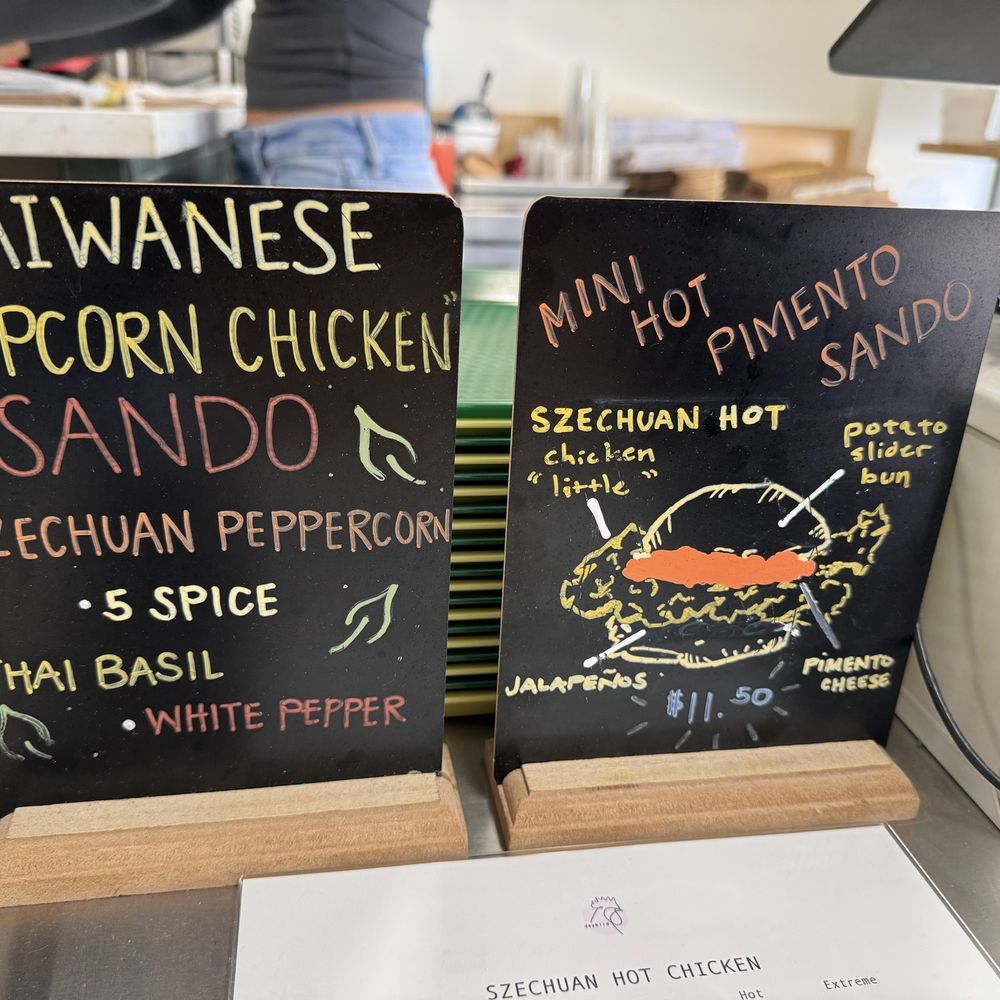 AIWANESE
PCORN CHICKEN"
SANDO
ZECHUAN PEPPERCORN
• 5 SPICE
THAI BASIL
• WHITE PEPPER
MINI
HOT
PIMENTO
SANDO
SZECHUAN HOT
chicken
"little"
potato
slider
bun
JALAPEÑOS
PIMENTO
CHEESE
$11.50
SZECHUAN HOT CHICKEN
Hot
Extreme